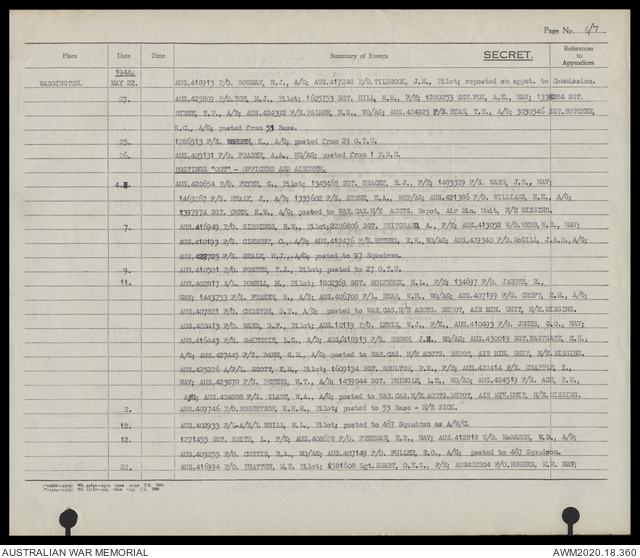 Page No. 6/7
Place Date Time Summary of Events SECRET. References to Appendices
1944.
WADDINGTON. MAY 22. AUS.418913 P/O. BOWMAN, N.J., A/G; AUS.417248 P/O.TILBROOK, J.H., Pilot; reposted on appnt. to Commission.
27. AUS.425809 P/O.ROE, M.J., Pilot; 1605753 SGT. HILL, W.H., F/E; 1280253 SGT.FOX, A.E., NAV; SGT.
T.P., A/B; AUS.424392 F/S.PALMER, N.S., WO/AG; AUS.424923 F/S.RYAN, T.R., A/G; 3030346 SGT.BUTCHER,
K.C., A/G; posted from 51 Base.
25. 1286513 F/S. K., A/G; posted from 29 O.T.U.
26. AUS.403131 P/O. FRASER, A.A., WO/AG; posted from 1 P.D.C.
POSTINGS "OUT" - OFFICERS AND AIRCREW.
4. AUS.420654 P/O. FRYER, G., Pilot; 1345468 SGT. GRACEY, R.J., F/E; 1483329 F/S. WARD, J.R., NAV;
1463267 F/S. HEALY, J., A/B; 1335602 F/S. STONE, E.A., WOP/AG; AUS.421386 F/O. WILLIAMS, H.E., A/G;
1397974 SGT. OWEN, K.W., A/G; posted to WAR.CAS.N/E ACCTS. Depot, Air Min. Unit, N/E MISSING.
7. AUS.416943 P/O. GIDDINGS, R.W., Pilot; 2206806 SGT. PRITCHARD, A., F/E; AUS.413052 W/O.WEBB, W.R., NAV;
AUS.410193 F/S. CLEMENT, C., A/B; AUS.412476 F/S.BETHEL, R.W., WO/AG; AUS.429340 F/O.McGILL, J.A.D., A/G;
AUS. F/S. BEALE, W.J., A/G; posted to 97 Squadron.
9. AUS.410501 P/O. FOSTER, T.J., Pilot; posted to 27 O.T.U.
11. AUS.402817 S/L. POWELL, M., Pilot; 1802369 SGT. MOLYNEUX, H.L., F/E; 134697 F/O. JAQUES, R.,
NAV; 1443753 F/S. FRASER, N., A/B; AUS.406700 F/L. READ, W.H., WO/AG; AUS.407199 F/O. CROFT, R.M., A/G;
AUS.407821 F/O. CROSTON, D.P., A/G; posted to WAR.CAS.N/E ACCTS. DEPOT, AIR MIN. UNIT, N/E.MISSING.
AUS.420413 P/O. WARD, D.F., Pilot; AUS.10119 P/O. LEWIS, N.J., F/E., AUS.410493 F/O. JONES, G.O., NAV;
AUS.416443 F/S. McKENZIE, L.G., AUS.418915 F/S. BROWN J.H., WO/AG; AUS.430019 SGT.EASTGATE, C.H.,
A/G; AUS.427443 F/S. DANN, G.M., A/G; posted to WAR.CAS. N/E ACCTS. DEPOT, AIR MIN. UNIT, N/E.MISSING
AUS.425226 A/F/L. SCOTT, H.M., Pilot; 1609134 SGT. BOULTON, P.H., F/E; AUS.422414 F/S. CHAPPLE, I.,
NAV; AUS.423878 F/S. PETERS, W.T., A/B; 1459044 SGT. PRINGLE, L.E., WO/AG; AUS.424519 F/S. ASH, R.W.,
A/G; AUS.424888 F/S. SLADE, W.A., A/G; posted to WAR.CAS.N/E.ACCTS.DEPOT, AIR MIN.UNIT, N/E.MISSING.
2. AUS.409746 P/O.ROBERTSON, K.H.M., Pilot; posted to 53 Base - N/E SICK.
12. AUS.402933 F/L-A/S/L BRILL, W.L., Pilot; posted to 467 Squadron as A/W/C.
12. 1271455 SGT. SMITH, L., F/E; AUS.408678 F/O. FREEMAN, E.R., NAV; AUS.412819 W/O. McMAHON, W.D., A/B;
AUS.403255 F/O. CURTIS, R.A., WO/AG; AUS.407149 F/O. FULLER, R.O., A/G; posted to 467 Squadron.
22. AUS.416994 P/O. TRATTEN, M.H. Pilot; 1581608 Sgt.SMART, O.E.G., F/E; AUS422204 F/O.HUGHES, M.R. NAV;
AUSTRALIAN WAR MEMORIAL AWM2020.18.360